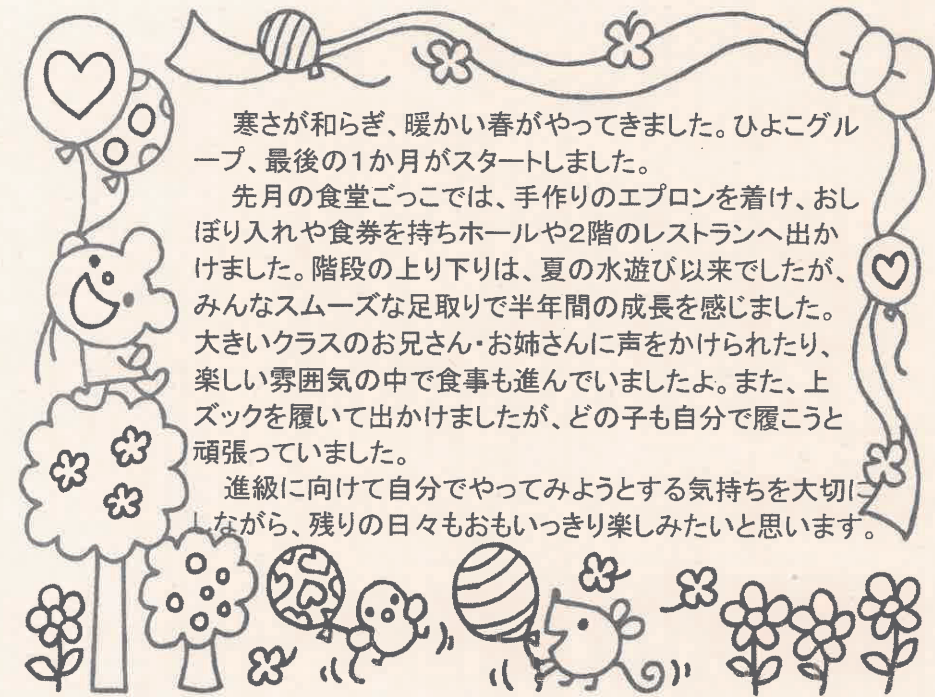 寒さが和らぎ、暖かい春がやってきました。ひよこグル
ープ、最後の1か月がスタートしました。
先月の食堂ごっこでは、手作りのエプロンを着け、おし
ぼり入れや食券を持ちホールや2階のレストランへ出か
けました。階段の上り下りは、夏の水遊び以来でしたが、
みんなスムーズな足取りで半年間の成長を感じました。
大きいクラスのお兄さん・お姉さんに声をかけられたり、
楽しい雰囲気の中で食事も進んでいましたよ。また、上
ズックを履いて出かけましたが、どの子も自分で履こうと
頑張っていました。
進級に向けて自分でやってみようとする気持ちを大切に
しながら、残りの日々もおもいっきり楽しみたいと思います。